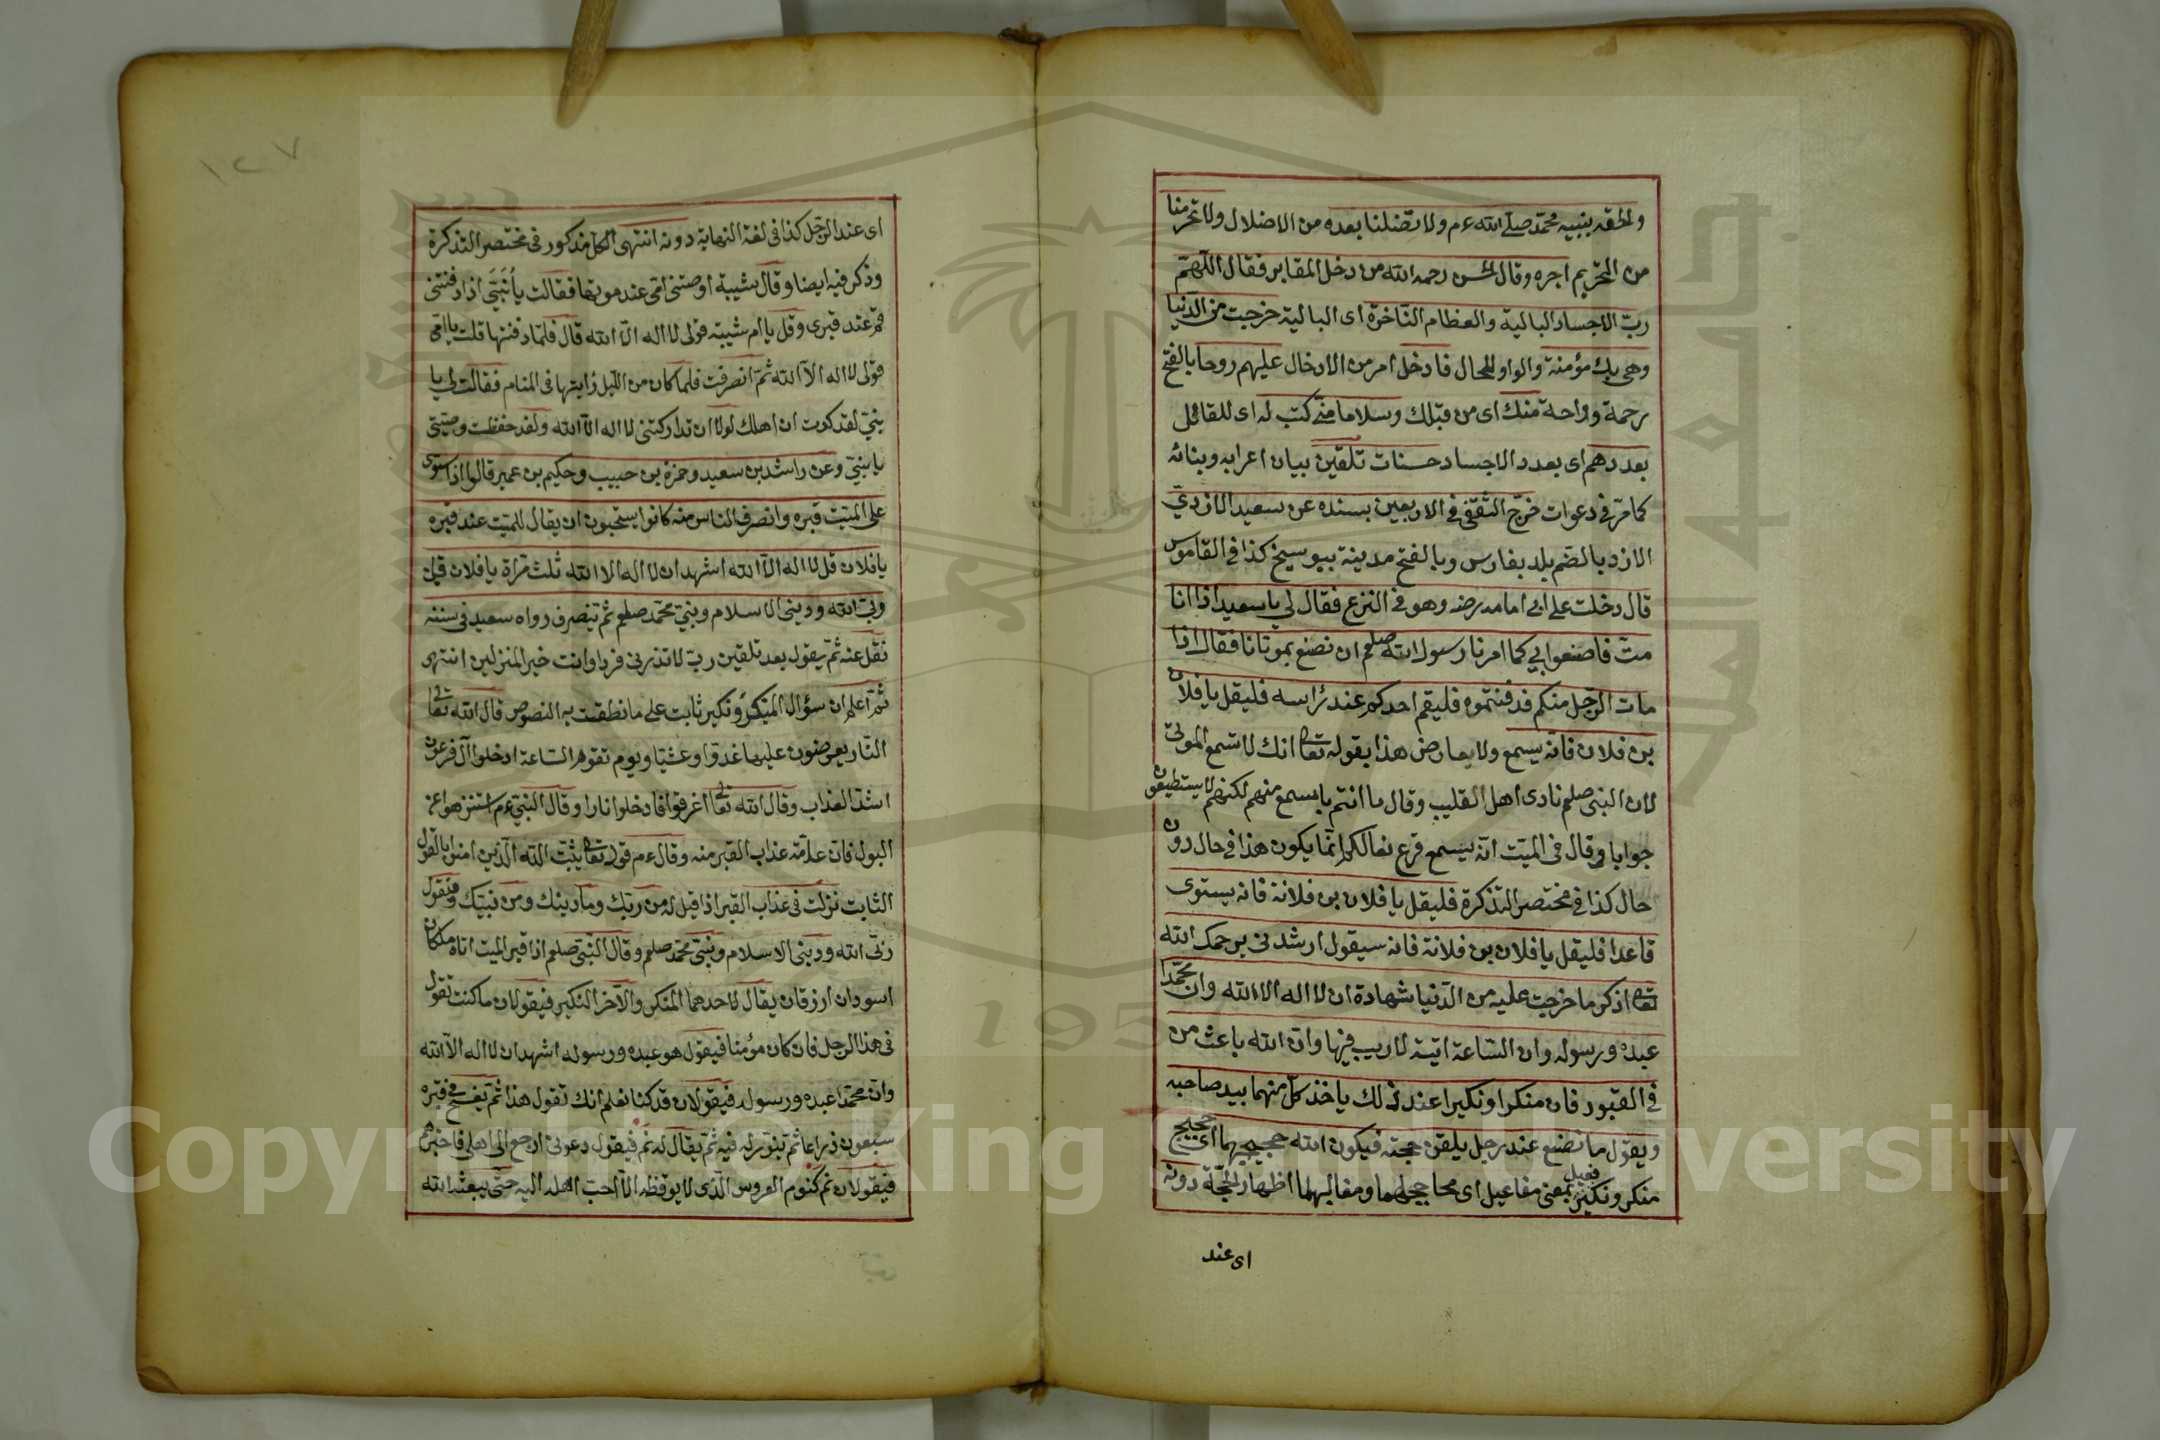 والحقه بنبيه محمد صلى الله ءم ولا تضلنا بعده من الاضلال ولا تحرمنا
من التحريم اجره وقال لحسن رحمه الله من دخل المقابر فقال اللهم
ربّ الاجساد البالية والعظام النّاخرة اى البالية خرجت من الدنيا
وهى بك مؤمنة والواو للحال فادخل امر من الادخال عليهم روحا بالفتح
رحمة وراحة منك اى من قبلك وسلاما منى كتب له اى للقائل
بعددهم اى بعدد الاجساد حسنات تلقين بيان اعرابه وبنائه
كما مرّ فى دعوات خرّج الثقفى فى الاربعين بسنده عن سعيد الازدي
الازد بالضم بلد بفارس وبالفتح مدينة كذا فى القاموس
قال دخلت على ابى امامه رضه وهو فى النزع فقال لى يا سعيد اذا انا
متّ فاصنعوا بي كما امرنا رسول الله صلعم ان نصنع بموتانا فقال اذا
مات الرّجل منكم فدفنتموه فليقم احدكم عند رأسه فليقل يا فلان
بن فلان فانّه يسمع ولا يعارض هذا بقوله تعا انك لا تسمع الموتى
لان النبى صلعم نادى اهل القليب وقال ما انتم باسمع منهم لكنهم لا يستطيعون
جوابا وقال فى الميّت انّه يسمع قرع نعالكم انّما يكون هذا فى حال دون
حال كذا فى مختصر التذكرة فليقل يا فلان بن فلانة فانه يستوى
قاعدا فليقل يا فلان بن فلانة فانه سيقول ارشدنى يرحمك الله
تعا اذكر ما خرجت عليه من الدّنيا شهادة ان لا اله الا الله وان محمّدا
عبده ورسوله وان السّاعة اتية لا ريب فيها وان الله باعث من
فى القبور فان منكرا ونكيرا عند ذلك ياخذ كلّ منهما بيد صاحبه
ويقول ما نصنع عند رجل يلقن حجته فيكون الله حجيجهما اى حجيج
منكر ونكير فعيل بمعنى مفاعيل اى محاججهما ومغالبهما اظهار الحجّة دونه
اى عند
١٢٧
اى عند الرّجل كذا فى لغة النهاية دونه انتهى الكل مذكور فى مختصر التذكرة
وذكر فيه ايضا وقال شيبة اوصتنى امّى عند موتها فقالت يا بُنَيَّ اذا دفنتنى
قم عند قبرى وقل يا ام شيبة قولى لا اله الّا الله قال فلمّا دفنتها قلت يا امّى
قولى لا اله الّا الله ثمّ انصرفت فلما كان من اللّيل رأيتها فى المنام فقالت لى يا
بنيّ لقد كدت ان اهلك لولا ان تداركتنى لا اله الّا الله ولقد حفظت وصيّتى
يا بنيّ وعن راشد بن سعيد وحمزة بن حبيب وحكيم بن عمير قالوا اذا سوّى
على الميّت قبره وانصرف الناس منه كانوا يستحبون ان يقال للميّت عند قبره
يا فلان قل لا اله الّا الله اشهد ان لا اله الا الله ثلث مرّة يا فلان قل
ربّى الله ودينى الاسلام ونبيّ محمّد صلعم ثم تنصرف رواه سعيد فى سننه
نقل عنه ثمّ يقول بعد تلقين ربّ لا تذرنى فردا وانت خير المنزلين انتهى
ثمّ اعلم ان سؤال المنكر ونكير ثابت على ما نطقت به النصوص قال الله تعا
النّار يعرضون عليها غدوا وعشيّا ويوم تقوم السّاعة ادخلوا آل فرعون
اشدّ العذاب وقال الله تعا اغرقوا فادخلوا نارا وقال النّبيّ ءم استنزهوا عن
البول فان عامّة عذاب القبر منه وقال ءم قوله تعا يثبّت الله الّذين امنوا بالقول
الثّابت نزلت فى عذاب القبر اذا قيل له من ربّك وما دينك ومن نبيّك فيقول
ربّى الله ودينى الاسلام ونبيّى محمّد صلعم وقال النّبيّ صلعم اذا قبر الميت اتاه ملكان
اسودان ازرقان يقال لاحدهما المنكر والآخر النّكير فيقولان ما كنت تقول
فى هذا الرجل فان كان مؤمنا فيقول هو عبده ورسوله اشهد ان لا اله الّا الله
وان محمّدا عبده ورسوله فيقولان قد كنا نعلم انك تقول هذا ثم يفسح فى قبره
سبعون ذراعا ثمّ ينوّر له فيه ثمّ يقال له نم فيقول دعونى ارجع الى اهلى فاخبرهم
فيقولان نم كنوم العروس الّذى لا يوقظه الّا احبّ اهله اليه حتّى يبعثه الله
Copyright © King Saud University
1957
جامعة الملك سعود